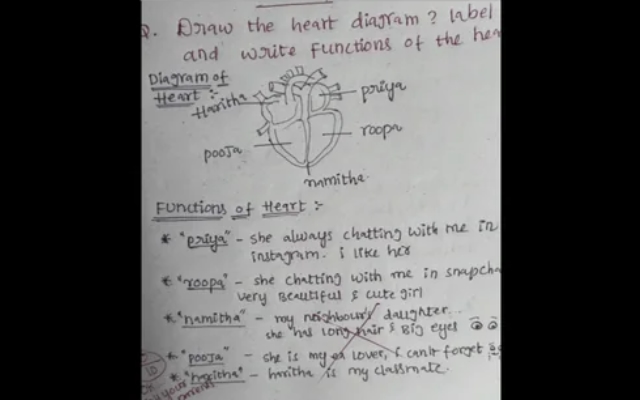 Q. Draw the heart diagram? label
and write functions of the hea
Diagram of
Heart :-
Haritha
priya
roopa
pooja
namitha.
Functions of Heart :-
* "priya" - she always chatting with me in
instagram. i like her
* "roopa" - she chatting with me in snapcha
very Beautiful & cute girl
* "namitha" - my neighbour's daughter..
she has long hair & Big eyes
* "pooja" - she is my ex lover, i can't forget
* "haritha" - haritha is my classmate.
10
your